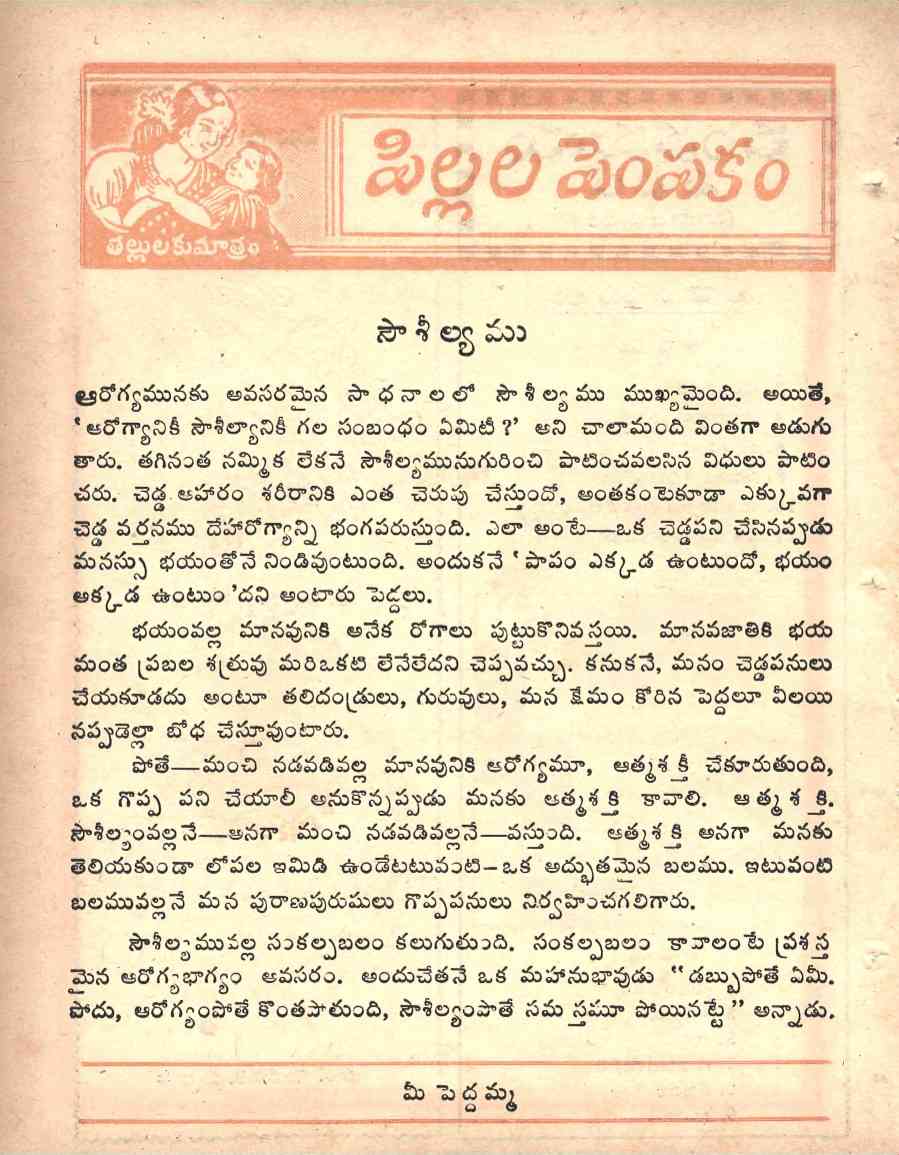 పిల్లల పెంపకం
తల్లులకుమాత్రం
సౌశీల్యము
ఆరోగ్యమునకు అవసరమైన సాధనాలలో సౌశీల్యము ముఖ్యమైంది. అయితే,
‘ఆరోగ్యానికీ సౌశీల్యానికీ గల సంబంధం ఏమిటీ?’ అని చాలామంది వింతగా అడుగు
తారు. తగినంత నమ్మిక లేకనే సౌశీల్యమునుగురించి పాటించవలసిన విధులు పాటిం
చరు. చెడ్డ ఆహారం శరీరానికి ఎంత చెరుపు చేస్తుందో, అంతకంటెకూడా ఎక్కువగా
చెడ్డ వర్తనము దేహారోగ్యాన్ని భంగపరుస్తుంది. ఎలా అంటే—ఒక చెడ్డపని చేసినప్పుడు
మనస్సు భయంతోనే నిండివుంటుంది. అందుకనే ‘పాపం ఎక్కడ ఉంటుందో, భయం
అక్కడ ఉంటుం’దని అంటారు పెద్దలు.
భయంవల్ల మానవునికి అనేక రోగాలు పుట్టుకొనివస్తయి. మానవజాతికి భయ
మంత ప్రబల శత్రువు మరిఒకటి లేనేలేదని చెప్పవచ్చు. కనుకనే, మనం చెడ్డపనులు
చేయకూడదు అంటూ తలిదండ్రులు, గురువులు, మన క్షేమం కోరిన పెద్దలూ వీలయి
నప్పుడెల్లా బోధ చేస్తూవుంటారు.
పోతే—మంచి నడవడివల్ల మానవునికి ఆరోగ్యమూ, ఆత్మశక్తీ చేకూరుతుంది,
ఒక గొప్ప పని చేయాలీ అనుకొన్నప్పుడు మనకు ఆత్మశక్తి కావాలి. ఆత్మశక్తి.
సౌశీల్యంవల్లనే—అనగా మంచి నడవడివల్లనే—వస్తుంది. ఆత్మశక్తి అనగా మనకు
తెలియకుండా లోపల ఇమిడి ఉండేటటువంటి–ఒక అద్భుతమైన బలము. ఇటువంటి
బలమువల్లనే మన పురాణపురుషులు గొప్పపనులు నిర్వహించగలిగారు.
సౌశీల్యమువల్ల సంకల్పబలం కలుగుతుంది. సంకల్పబలం కావాలంటే ప్రశస్త
మైన ఆరోగ్యభాగ్యం అవసరం. అందుచేతనే ఒక మహానుభావుడు “డబ్బుపోతే ఏమీ.
పోదు, ఆరోగ్యంపోతే కొంతపోతుంది, సౌశీల్యంపోతే సమస్తమూ పోయినట్టే” అన్నాడు.
మీ పెద్దమ్మ